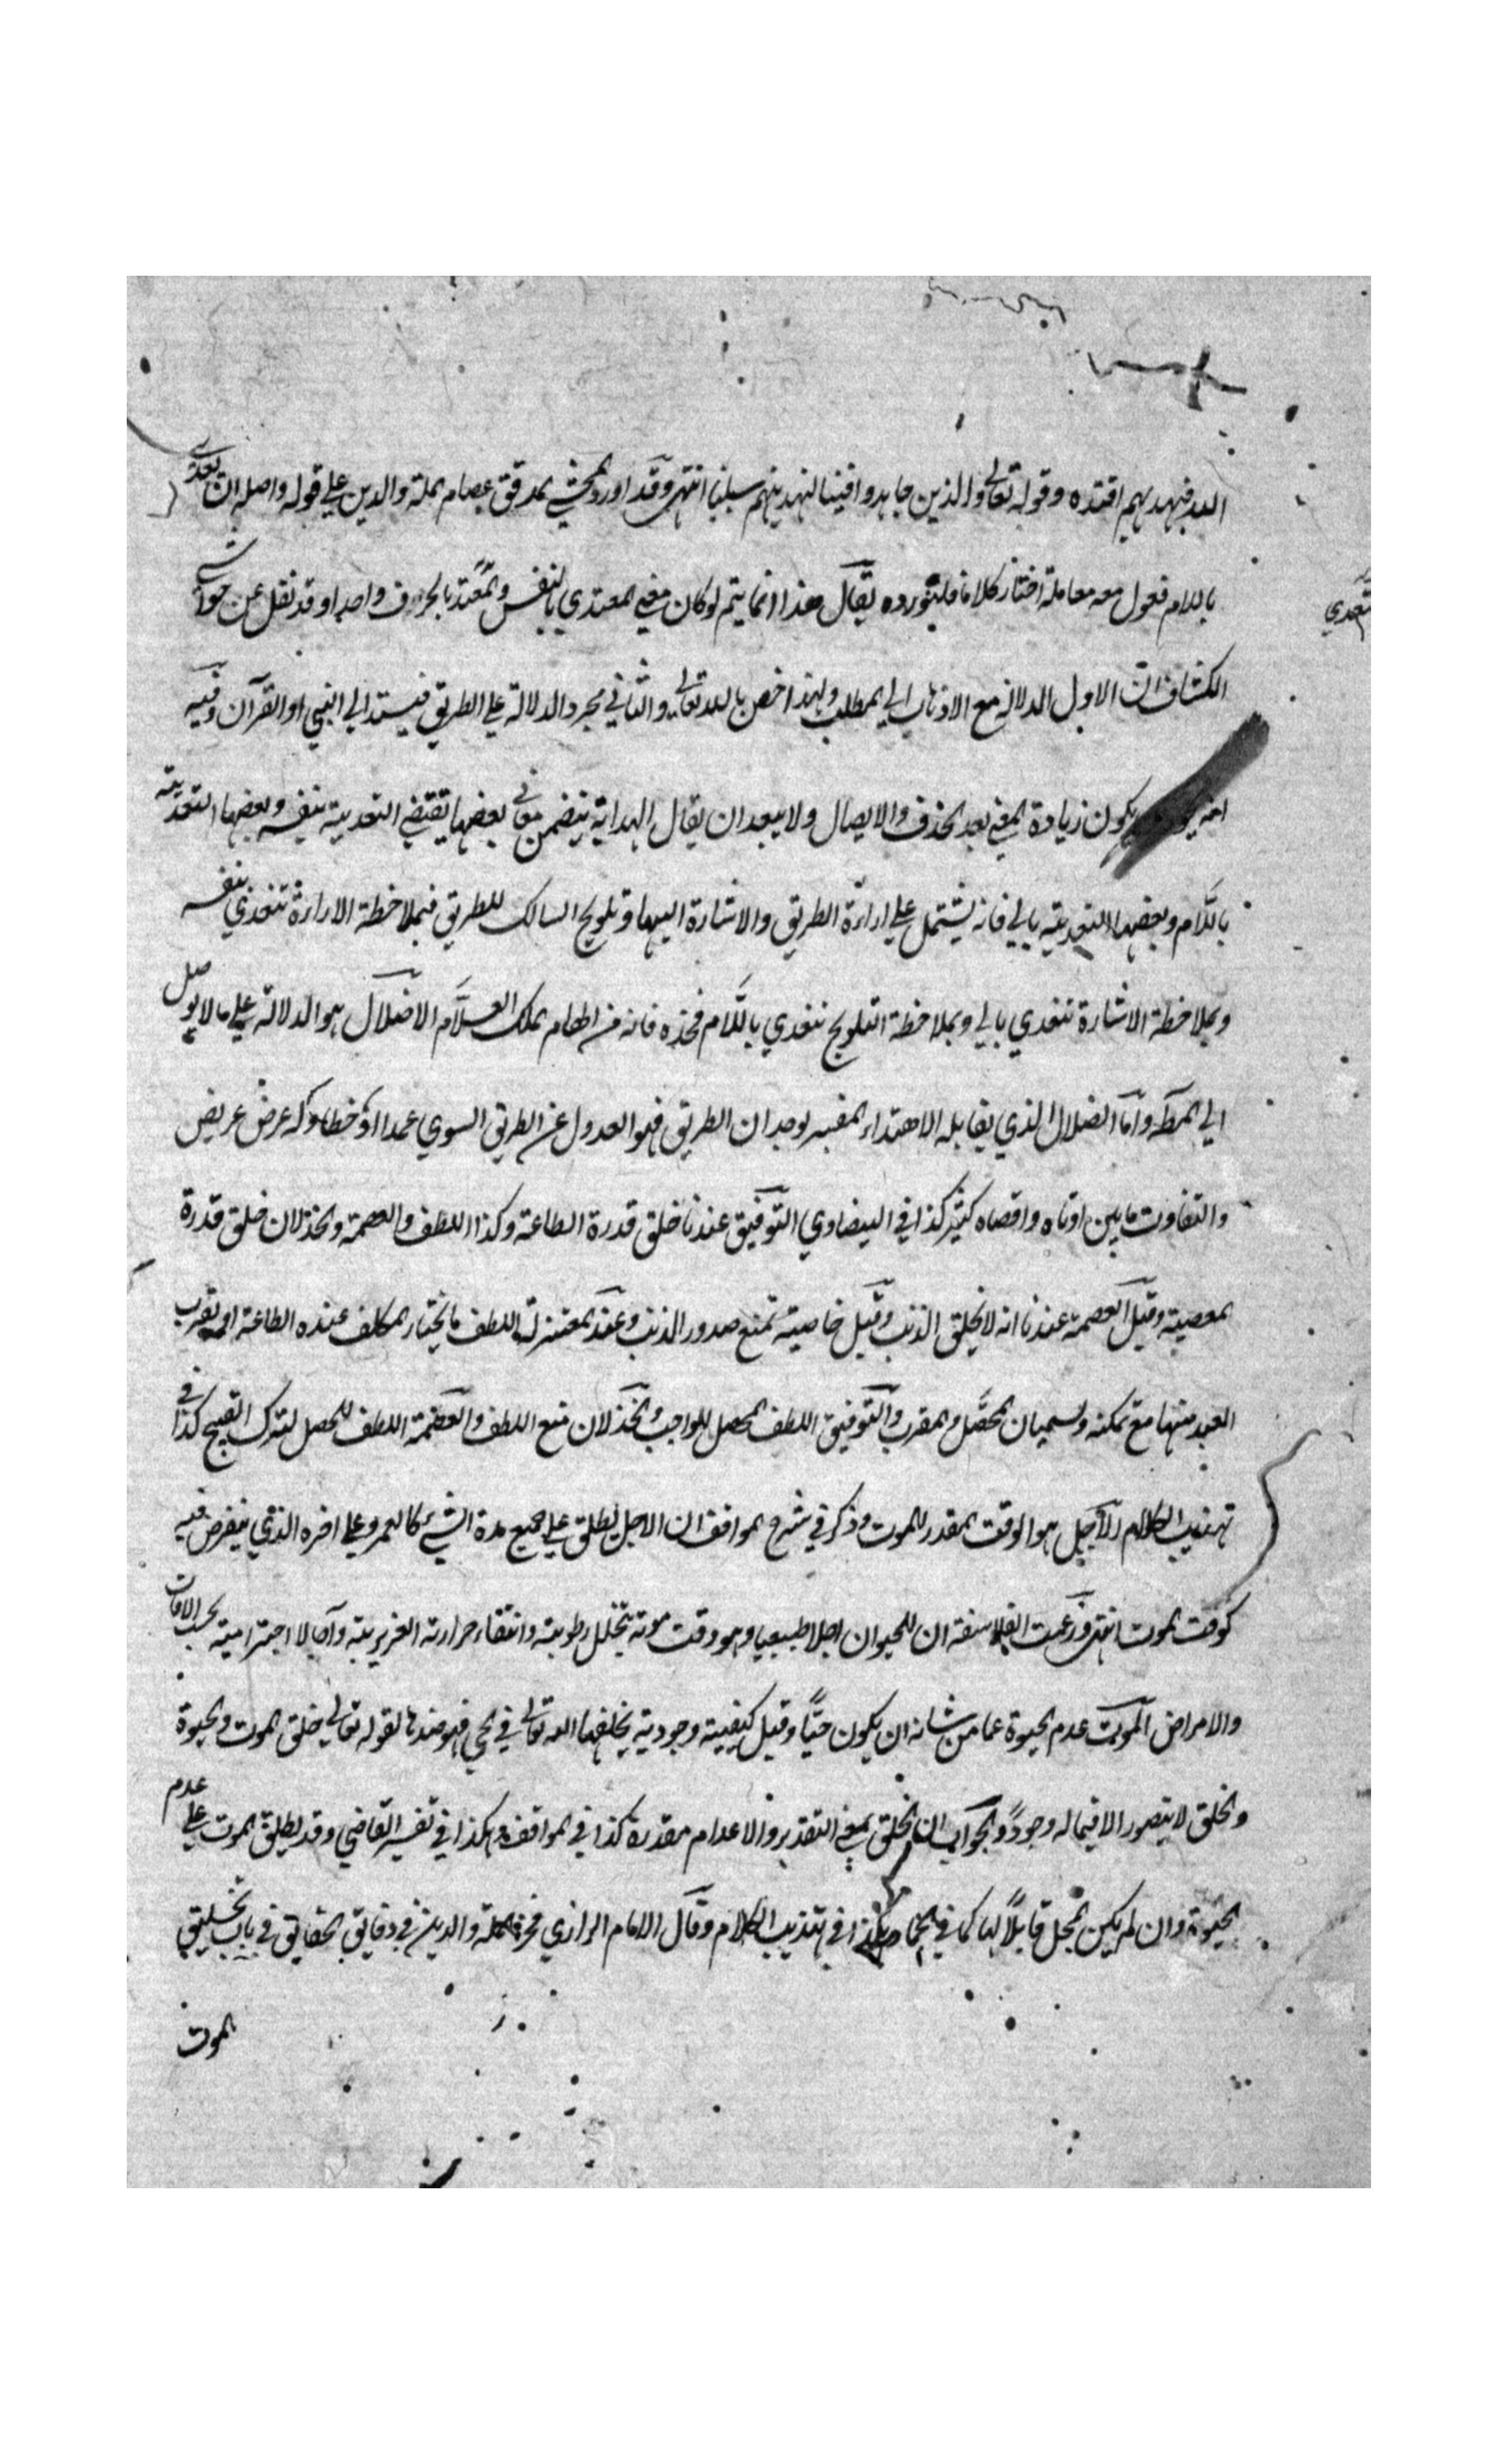 الله فبهديهم اقتده وقوله تعالى والذين جاهدوا فينا لنهدينهم سبلنا انتهى وقد اورد المحشي المدقق عصام الملة والدين على قوله واصله ان يعدى
باللام فعول معه معاملة اختار كلاما فليثورده يقال هذا انما يتم لو كان معنى المتعدي بالنفس والمتعد بالحروف واحدا وقد نقل عن حواشي
تتعدي
الكشاف ان الاول الدلالة مع الاذهاب الى المطلب ولهذا خص بالله تعالى والثاني مجرد الدلالة على الطريق فيسند الى النبي او القرآن وفيه
انه يكون زيادة المعنى بعد الحذف والايصال ولا يبعد ان يقال الهداية يتضمن معاني بعضها يقتضي التعدية بنفسه وبعضها التعدية
باللام وبعضها التعدية بالى فانه يشتمل على اراءة الطريق والاشارة اليها وتلويح السالك للطريق فبملاحظة الاراءة تتعدي بنفسه
وبملاحظة الاشارة تتعدي بالى وبملاحظة التلويح تتعدي باللام فخذه فانه من الهام الملك العلام الاضلال هو الدلالة على ما لا يوصل
الى المط واما الضلال الذي يقابله الاهتداء المفسر بوجدان الطريق فهو العدول عن الطريق السوي عمدا او خطا وله عرض عريض
والتفاوت ما بين ادناه واقصاه كثير كذا في البيضاوي التوفيق عندنا خلق قدرة الطاعة وكذا اللطف والعصمة والخذلان خلق قدرة
المعصية وقيل العصمة عندنا انه لا يخلق الذنب وقيل خاصية تمنع صدور الذنب وعند المعتزلة اللطف ما يختار المكلف عنده الطاعة او يقرب
العبد منها مع تمكنه ويسميان المحصل والمقرب والتوفيق اللطف المحصل للواجب والخذلان منع اللطف والعصمة اللطف المحصل لترك القبيح كذا في
تهذيب الكلام الاجل هو الوقت المقدر للموت وذكر في شرح المواقف ان الاجل يطلق على جميع مدة الشيء كالعمر وعلى اخره الذي ينقرض فيه
كوقت الموت انتهى وزعمت الفلاسفة ان للحيوان اجلا طبيعيا وهو وقت موته بتحلل رطوبته وانتفاء حرارته الغريزيته وآجالا اخترامية بحسب الافات
والامراض الموت عدم الحيوة عما من شانه ان يكون حيّا وقيل كيفية وجودية يخلقها الله تعالى في الحي فهو ضدها لقوله تعالى خلق الموت والحيوة
والخلق لا يتصور الا فيما له وجود والجواب ان الخلق بمعنى التقدير والاعدام مقدرة كذا في المواقف وهكذا في تفسير القاضي وقد يطلق الموت على عدم
الحيوة وان لم يكن المحل قابلا لها كما في الجماد هكذا في تهذيب الكلام وقال الامام الرازي فخر الملة والدين في دقايق الحقايق في باب تخليق
الموت